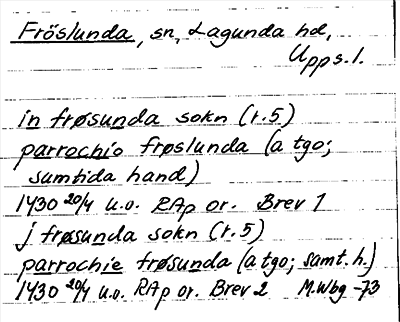 Fröslunda, sn, Lagunda hd,
Upps.l.
in frøsunda sokn (r.5)
parrochio frøslunda (a tgo;
samtida hand)
1430 20/4 u.o. RAp or. Brev 1
j frøsunda sokn (r.5)
parrochie frøsunda (a tgo; samt.h.)
1430 20/4 u.o. RAp or. Brev 2 M.Wbg -73